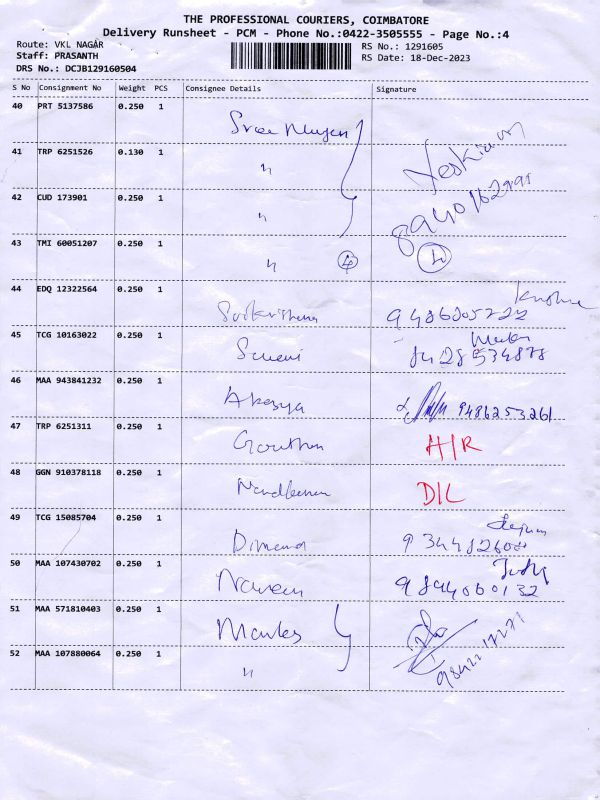 THE PROFESSIONAL COURIERS, COIMBATORE
Delivery Runsheet - PCM - Phone No.:0422-3505555 - Page No.:4
Route: VKL NAGAR
RS No.: 1291605
Staff: PRASANTH
RS Date: 18-Dec-2023
DRS No.: DCJB129160504
S No Consignment No Weight PCS Consignee Details Signature
40 PRT 5137586 0.250 1
41 TRP 6251526 0.130 1 "
42 CUD 173901 0.250 1 "
43 TMI 60051207 0.250 1 " 4
44 EDQ 12322564 0.250 1 9486205222
45 TCG 10163022 0.250 1 8428534878
46 MAA 943841232 0.250 1 Akasya 9486253261
47 TRP 6251311 0.250 1 H/R
48 GGN 910378118 0.250 1 D/L
49 TCG 15085704 0.250 1
50 MAA 107430702 0.250 1 Naveen 9894060132
51 MAA 571810403 0.250 1
52 MAA 107880064 0.250 1 " 9842217271